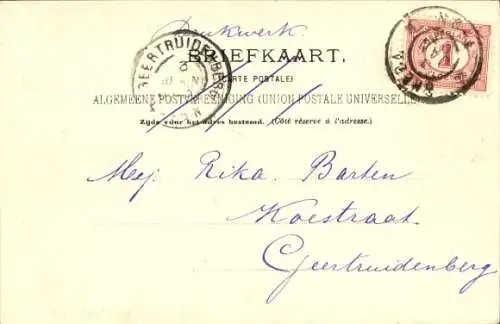 Drukwerk
BRIEFKAART.
(CARTE POSTALE)
ALGEMEENE POSTVEREENIGING (UNION POSTALE UNIVERSELLE)
Zijde voor het adres bestemd. (Côté réservé à l'adresse.)
GEERTRUIDENBERG
1
Mej. Rika. Barten
Koestraat.
Geertruidenberg